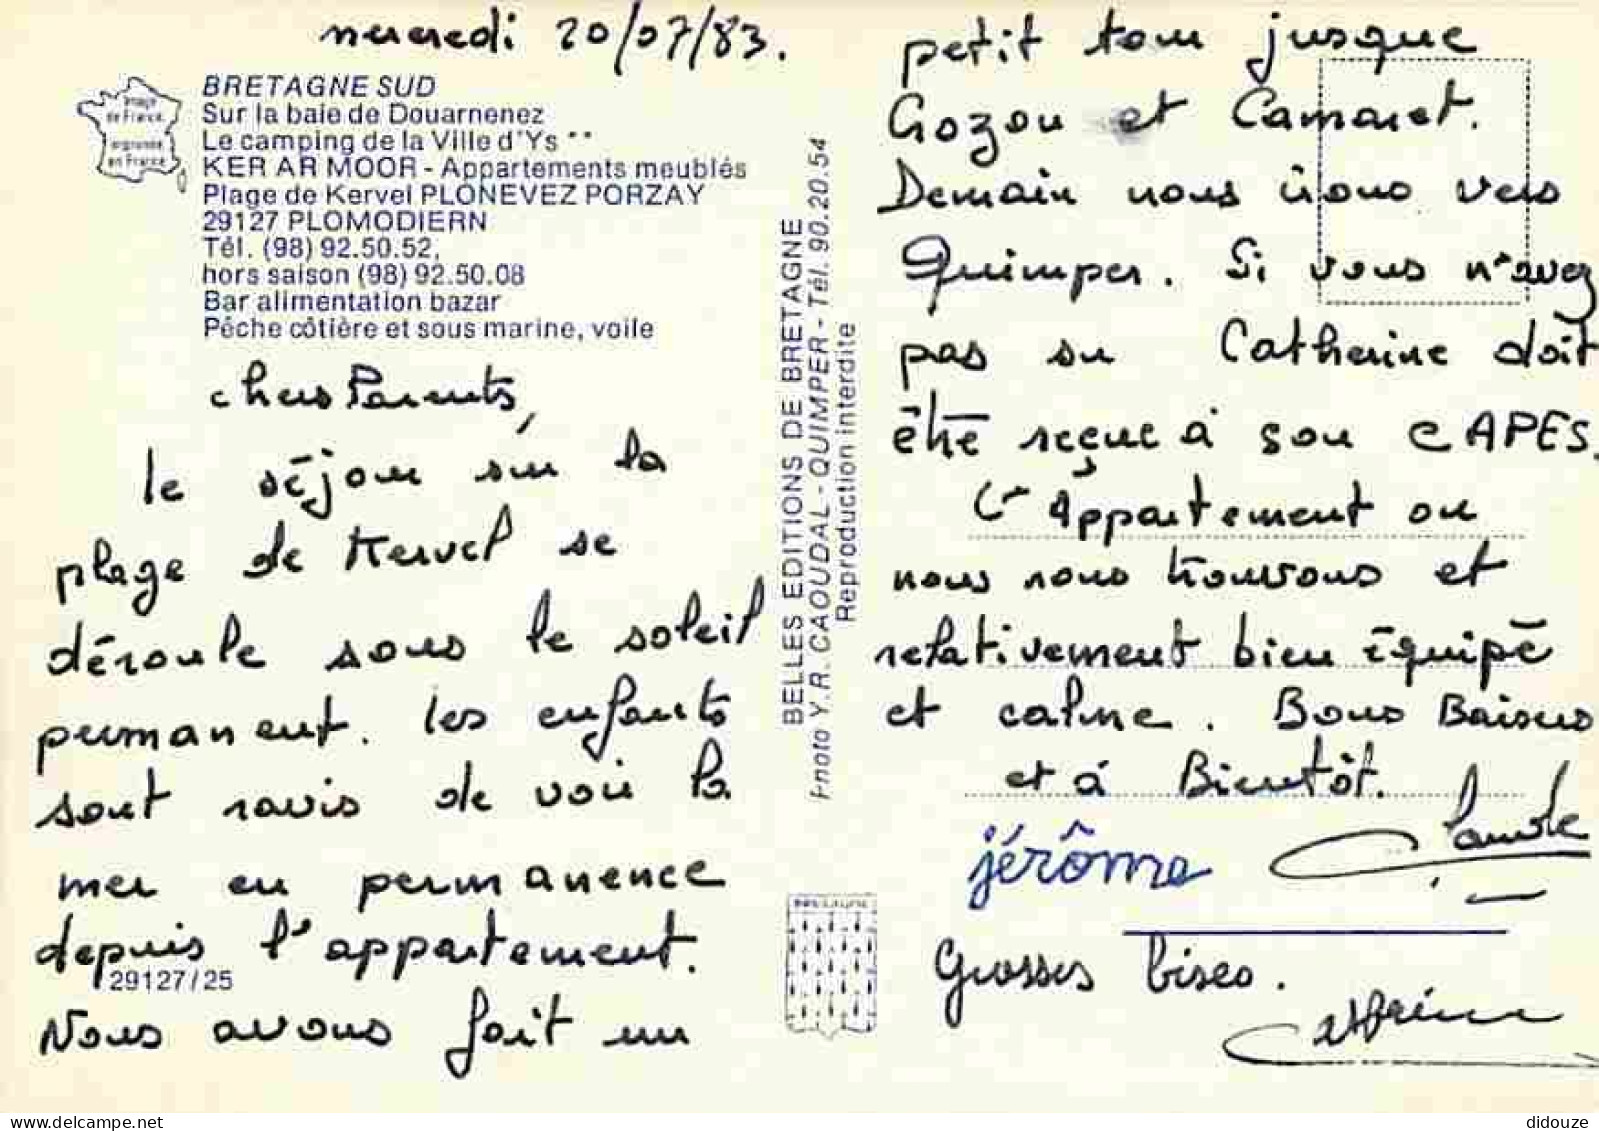 mercredi 20/07/83.
image
de France
imprimée
en France
BRETAGNE SUD
Sur la baie de Douarnenez
Le camping de la Ville d'Ys **
KER AR MOOR - Appartements meublés
Plage de Kervel PLONEVEZ PORZAY
29127 PLOMODIERN
Tél. (98) 92.50.52,
hors saison (98) 92.50.08
Bar alimentation bazar
Pêche côtière et sous marine, voile
chers Parents,
le séjour sur la
plage de Kervel se
déroule sous le soleil
permanent. les enfants
sont ravis de voir la
mer en permanence
depuis l'appartement.
29127/25
Nous avons fait un
BELLES EDITIONS DE BRETAGNE
Photo Y.R. CAOUDAL - QUIMPER - Tél. 90.20.54
Reproduction interdite
petit tour jusque
Crozon et Camaret.
Demain nous irons vers
Quimper. Si vous n'avez
pas su Catherine doit
être reçue à son CAPES.
L'Appartement ou
nous nous trouvons et
relativement bien équipé
et calme. Bons Baisers
et à Bientôt.
jérôme
Grosses bises.
Catherine
didouze